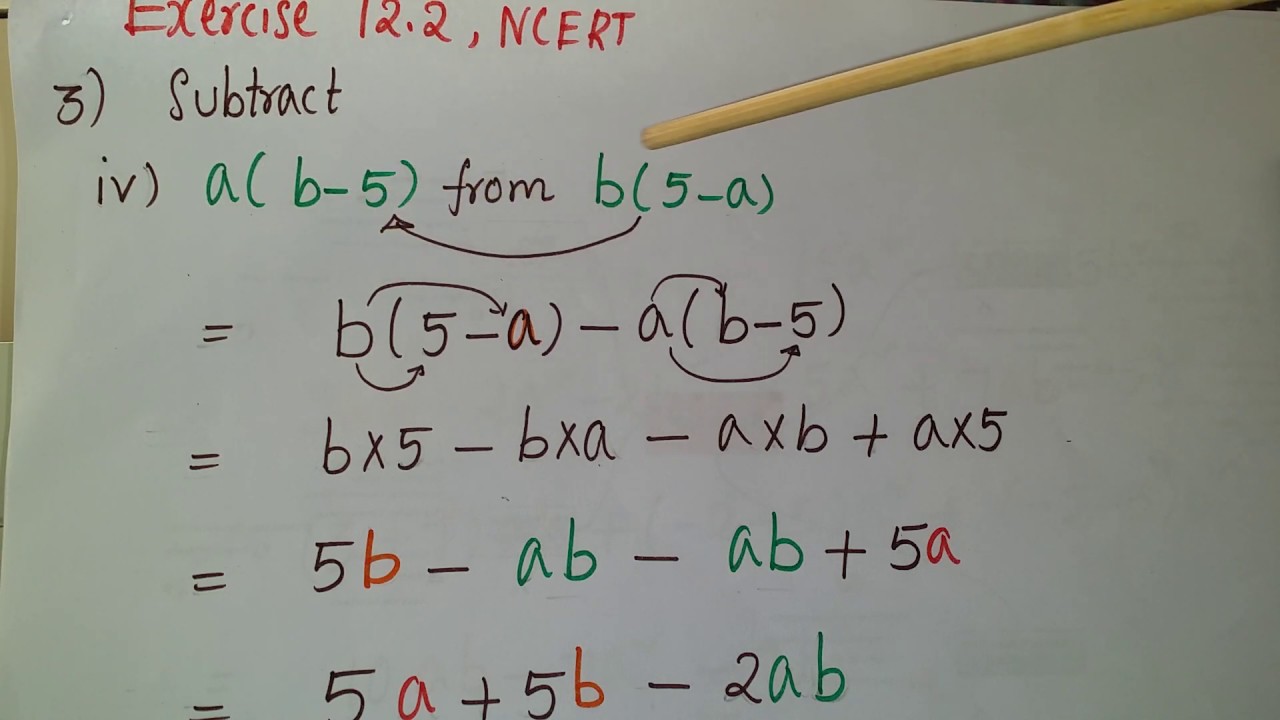 Exercise 12.2, NCERT
3) Subtract
iv) a(b-5) from b(5-a)
= b(5-a) - a(b-5)
= b×5 - b×a - a×b + a×5
= 5b - ab - ab + 5a
= 5a + 5b - 2ab